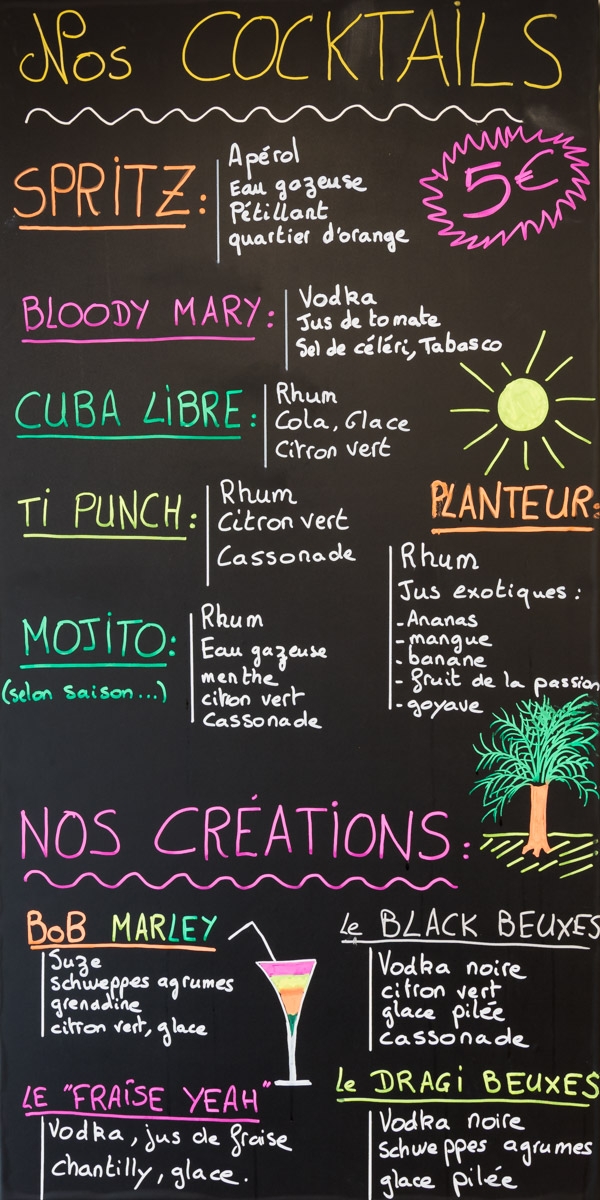 Nos COCKTAILS
SPRITZ:
Apérol
Eau gazeuse
Pétillant
quartier d'orange
5€
BLOODY MARY:
Vodka
Jus de tomate
Sel de céléri, Tabasco
CUBA LIBRE:
Rhum
Cola, Glace
Citron vert
TI PUNCH:
Rhum
Citron vert
Cassonade
PLANTEUR:
Rhum
Jus exotiques :
- Ananas
- mangue
- banane
- fruit de la passion
- goyave
MOJITO:
(selon saison...)
Rhum
Eau gazeuse
menthe
citron vert
Cassonade
NOS CRÉATIONS:
BOB MARLEY
Suze
schweppes agrumes
grenadine
citron vert, glace
Le BLACK BEUXES
Vodka noire
citron vert
glace pilée
cassonade
LE "FRAISE YEAH"
Vodka, jus de fraise
chantilly, glace.
Le DRAGI BEUXES
Vodka noire
schweppes agrumes
glace pilée